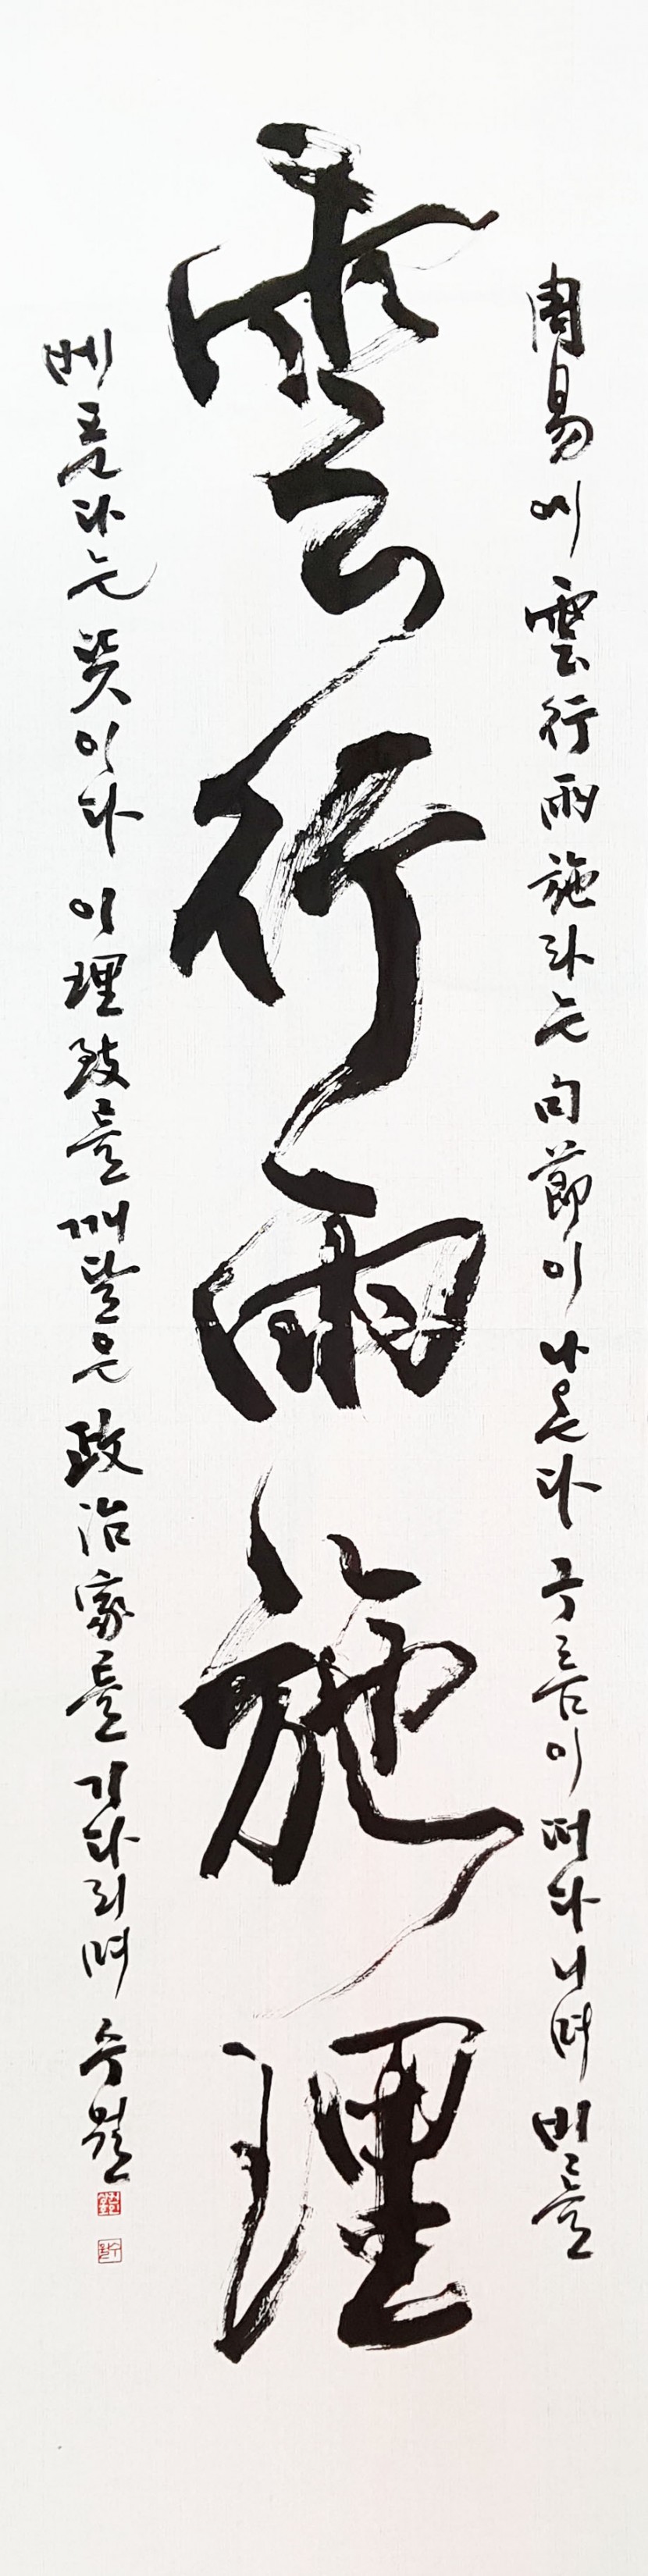 周易에 雲行雨施라는 句節이 나온다 구름이 떠다니며 비를
雲行雨施理
베푼다는 뜻이다 이 理致를 깨달은 政治家를 기다리며 수월